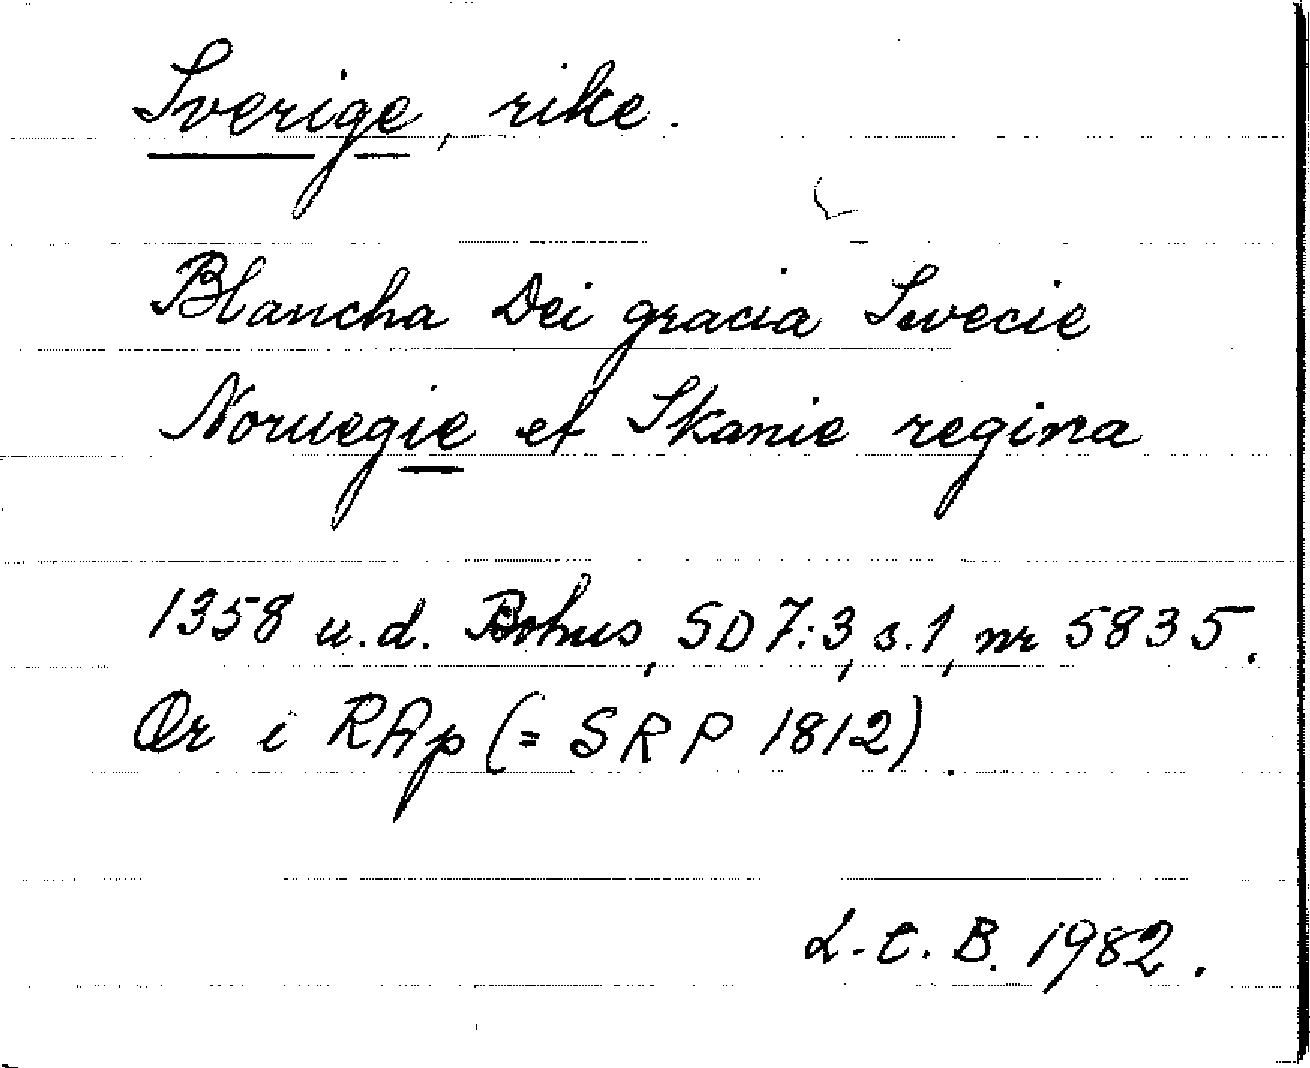 Sverige, rike.
Blancha Dei gracia Swecie
Noruegie et Skanie regina
1358 u.d. Bohus, SD 7:3, s.1, nr 5835.
Or i RAp (= SRP 1812).
L.E.B. 1982.